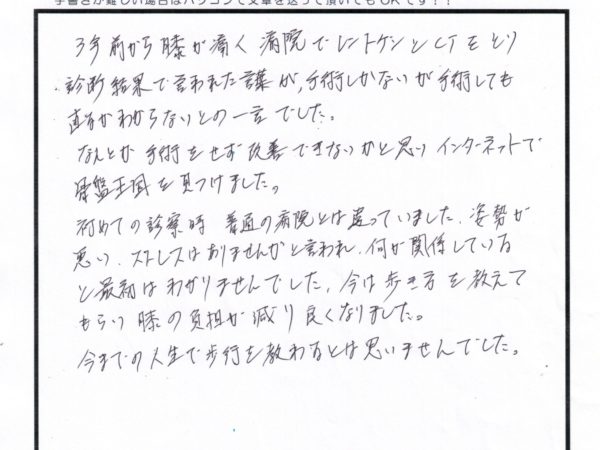 手書きが難しい場合はパソコンで文章を送って頂いてもOKです!!
3年前から膝が痛く 病院でレントゲンとCTをとり
診断結果で言われた言葉が、手術しかないが手術しても
直るかわからないとの一言でした。
なんとか手術をせず改善できないかと思いインターネットで
骨盤王国を見つけました。
初めての診察時 普通の病院とは違っていました、姿勢が
悪い、ストレスはありませんかと言われ、何が関係している
と最初はわかりませんでした、今は歩き方を教えて
もらい膝の負担が減り良くなりました。
今までの人生で歩行を教わるとは思いませんでした。